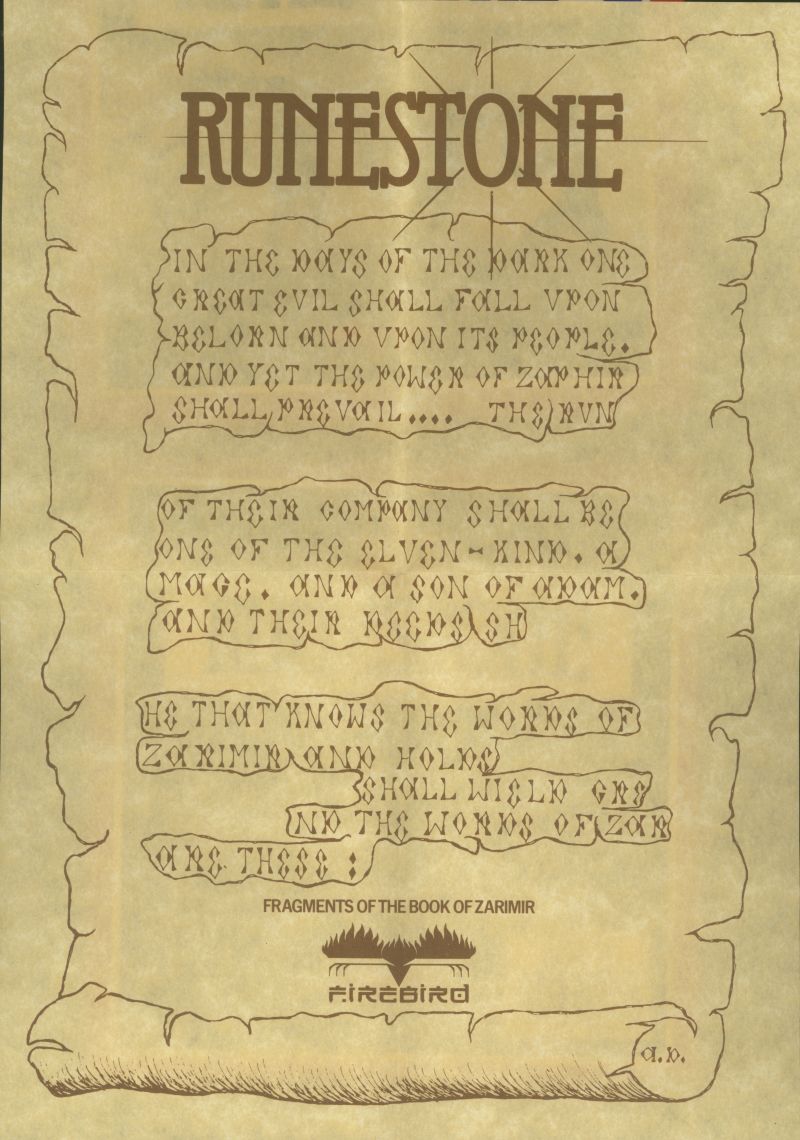 RUNESTONE
IN THE DAYS OF THE DARK ONE
GREAT EVIL SHALL FALL VPON
BELORN AND VPON ITS PEOPLE.
AND YET THE POWER OF ZAPHIR
SHALL PREVAIL.... THE RVN
OF THEIR COMPANY SHALL BE
ONE OF THE ELVEN-KIND. A
MAGE. AND A SON OF ADAM.
AND THEIR DEEDS SH
HE THAT KNOWS THE WORDS OF
ZARIMIR AND HOLDS
SHALL WIELD GRE
ND THE WORDS OF ZAR
ARE THESE :
FRAGMENTS OF THE BOOK OF ZARIMIR
FIREBIRD
a.b.